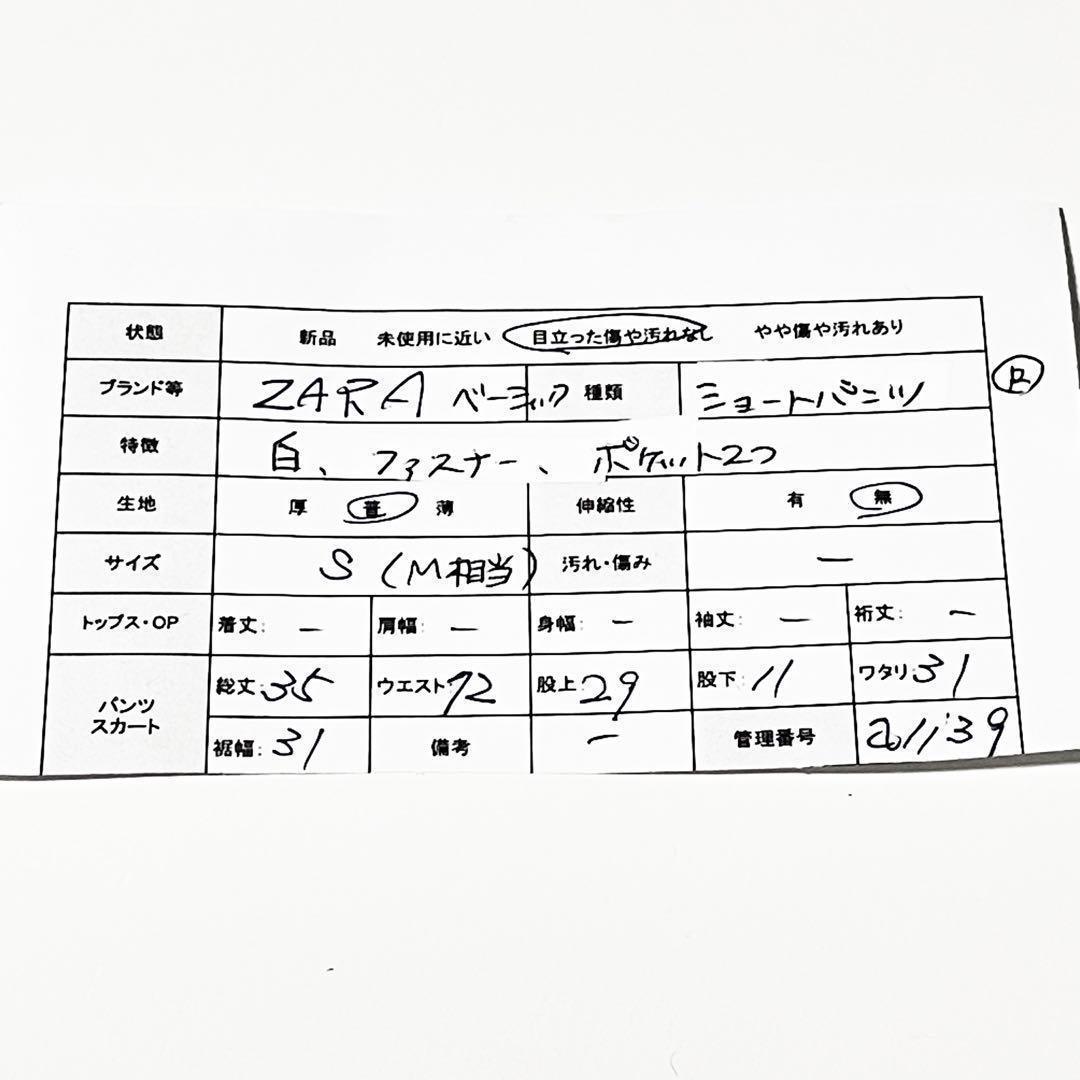 状態 新品 未使用に近い 目立った傷や汚れなし やや傷や汚れあり
ブランド等 ZARA ベーシック 種類 ショートパンツ
特徴 白、ファスナー、ポケット2つ
生地 厚 普 薄 伸縮性 有 無
サイズ S (M相当) 汚れ・傷み ー
トップス・OP 着丈: ー 肩幅: ー 身幅: ー 袖丈: ー 裄丈: ー
パンツ スカート 総丈: 35 ウエスト: 72 股上: 29 股下: 11 ワタリ: 31
裾幅: 31 備考 ー 管理番号 201139